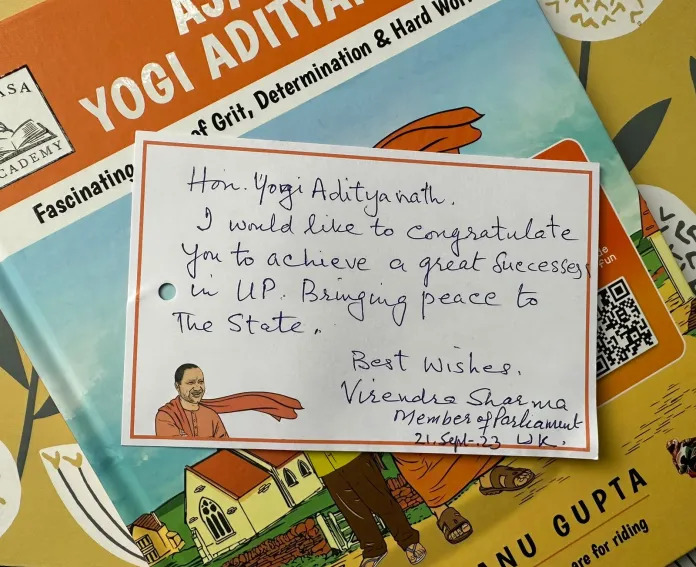 ASA
ACADEMY
YOGI ADITYA
of Grit, Determination & Hard Wor
Fascinating
Hon. Yogi Adityanath.
I would like to congratulate
You to achieve a great Successes
in UP. Bringing peace to
The State.
Best Wishes.
Virendra Sharma
Member of Parliament
21. Sept-23 UK.
Fun
ANU GUPTA
are for riding